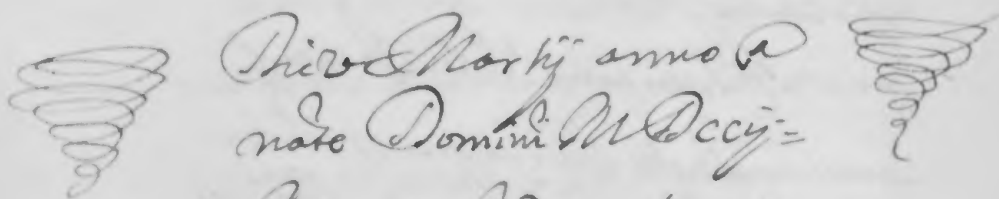 Die v Martij anno a
nato Domini M Dccij=